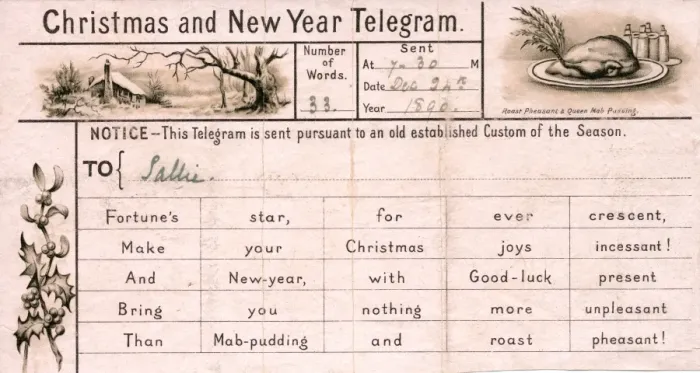 Christmas and New Year Telegram.
Number of Words.
33.
Sent
At 7-30 M
Date Dec 24th
Year 1890.
Roast Pheasant & Queen Mab Pudding.
NOTICE—This Telegram is sent pursuant to an old established Custom of the Season.
TO { Sallie.
Fortune's star, for ever crescent,
Make your Christmas joys incessant!
And New-year, with Good-luck present
Bring you nothing more unpleasant
Than Mab-pudding and roast pheasant!